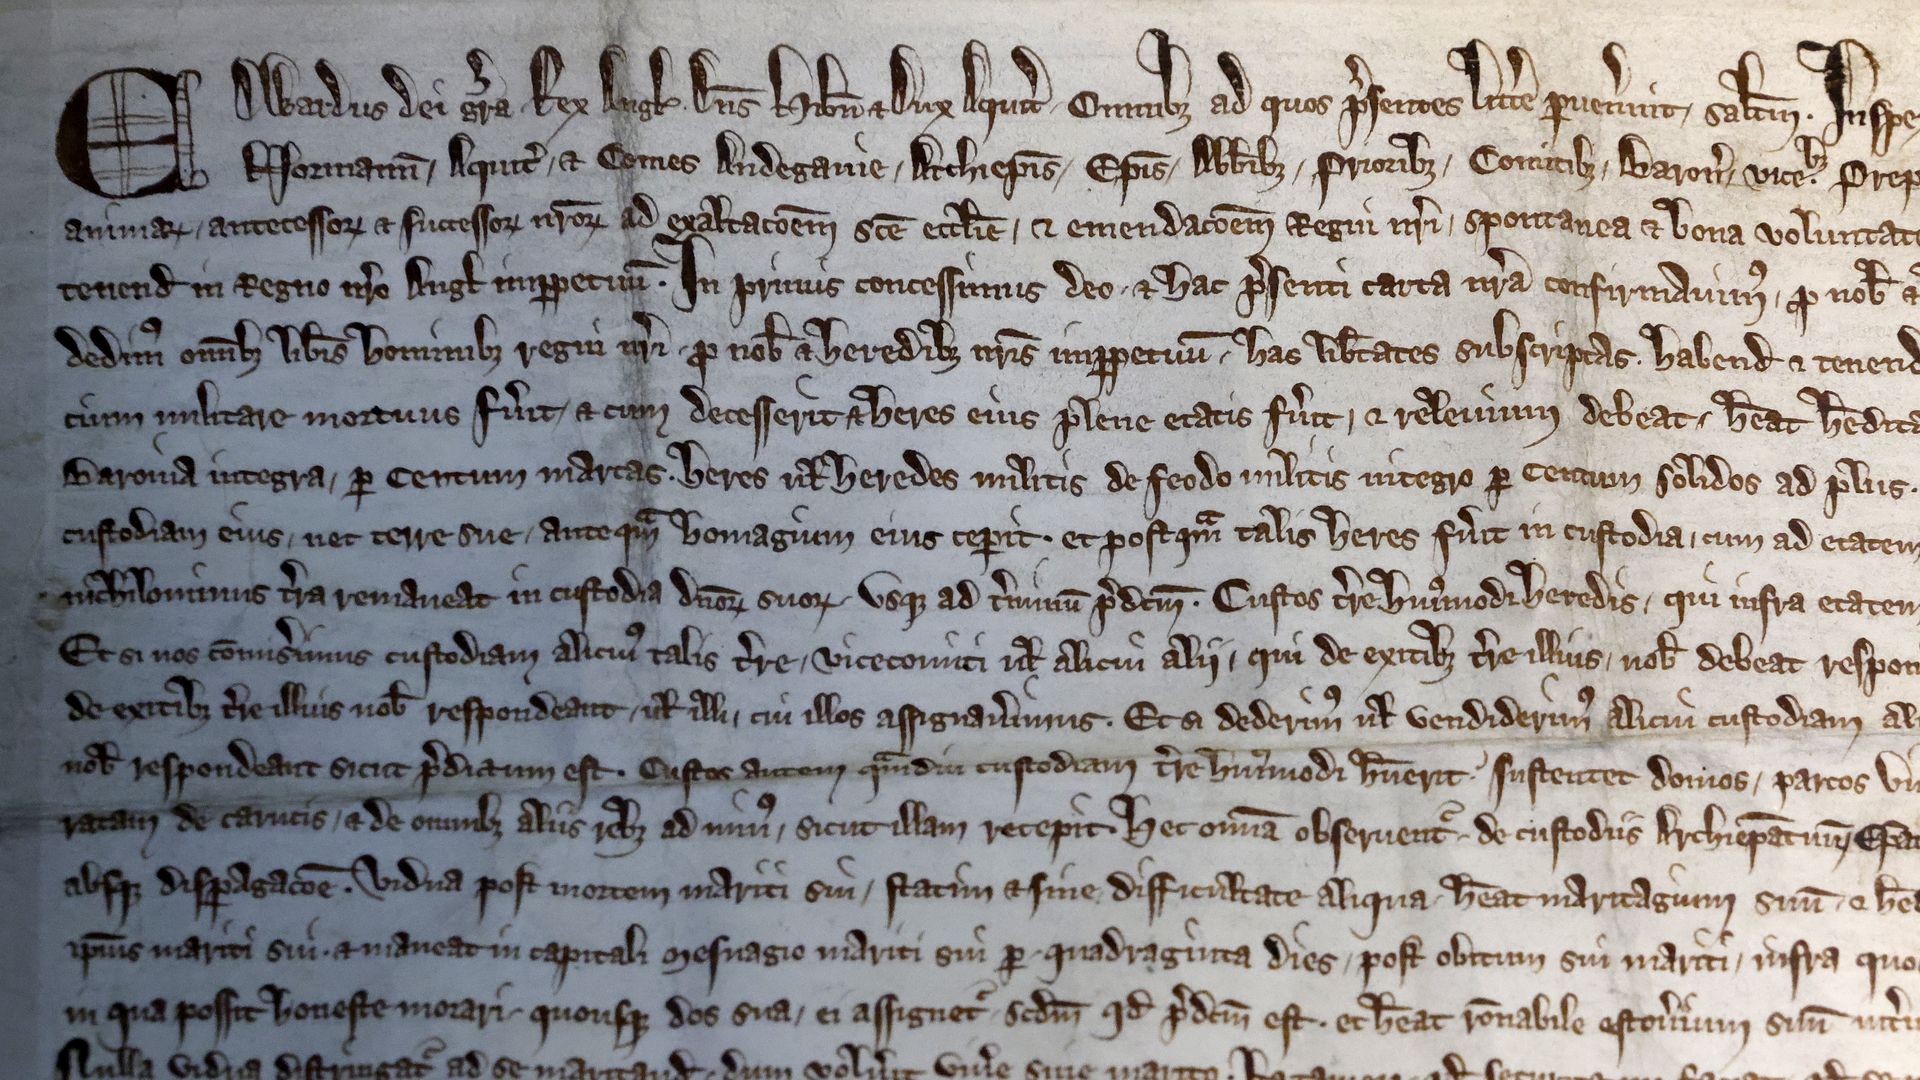 Edwardus dei gr̄a Rex Angl. Dn̄s Hib̄n & Dux Aquit̄. Omnibꝫ ad quos p̄sentes litt̄e p̱uen̄int, sal̄tm. Inspe
Normann̄, Aquit̄, & Comes Andegauie, Archiep̄is, Ep̄is, Abb̄ibꝫ, Prioribꝫ, Comitibꝫ, Baron̄, vicēbꝫ Prep
animaꝝ, antecessoꝝ & successoꝝ nr̄oꝝ ad exaltac̄oem sc̄e eccl̄ie, & emendac̄oem Regni nr̄i, spontanea & bona voluntate
tenend in Regno nr̄o Angl imꝑpetuū. In primis concessimus deo, & hac p̄senti carta nr̄a confirmauimꝰ, ꝓ nob̄ &
dedimꝰ omībꝫ lib̄is hominibꝫ regni nr̄i ꝓ nob̄ & heredibꝫ nr̄is imꝑpetuū, has lib̄tates subscriptas. habend & tenend
cium militare mortuus fūit, & cum decesserit & heres eius plene etatis fūit, & releuium debeat, hēat hēdita
Baronia integra, ꝑ Centum marcas. heres uł heredes militis de feodo militis integro ꝑ Centum solidos ad plus.
custodiam eius, nec terre sue, anteqᵃm homagium eius ceꝑit. et postqᵃm talis heres fūit in custodia, cum ad etatem
nichilominus t̄ra remaneat in custodia dn̄oꝝ suoꝝ vsqꝫ ad t̄minū p̄dc̄m. Custos t̄re huiꝰmodi heredis, qui infra etatem
Et si nos cōmis̄imus custodiam alicuiꝰ talis t̄re, vicecomiti uł alicui alij, qui de exitibꝫ t̄re illius, nob̄ debeat respon
de exitibꝫ t̄re illius nob̄ respondeant, uł illi, cui illos assignau̅imus. Et si dederimꝰ uł vendiderimꝰ alicui custodiam ali
nob̄ respondeant sicut p̄dictum est. Custos autem qᵃmdiu custodiam t̄re huiꝰmodi hūerit. sustentet domos, parcos vi
ratam de carucis, & de omnibꝫ aliis rebꝫ ad minꝰ, sicut illam recepit. Hec omīa obseruent᷑ de custodiis Archiep̄atuum, Ep̄at
absqꝫ disꝑagac̄oe. Vidua post mortem mariti sui, statim & sine difficultate aliqua hēat maritagium suū & hē
ip̄ius mariti sui. & maneat in capitali mesuagio mariti sui ꝑ quadraginta dies, post obitum sui mariti, infra quo
in qua possit honeste morari quousqꝫ dos sua, ei assignet᷑ sc̄dm qd̄ p̄dc̄m est. et hēat rōnabile estou̅ium suū int̄i
Nulla vidua distringat᷑ ad se maritand, dum volu̅it viu̅e sine marito.